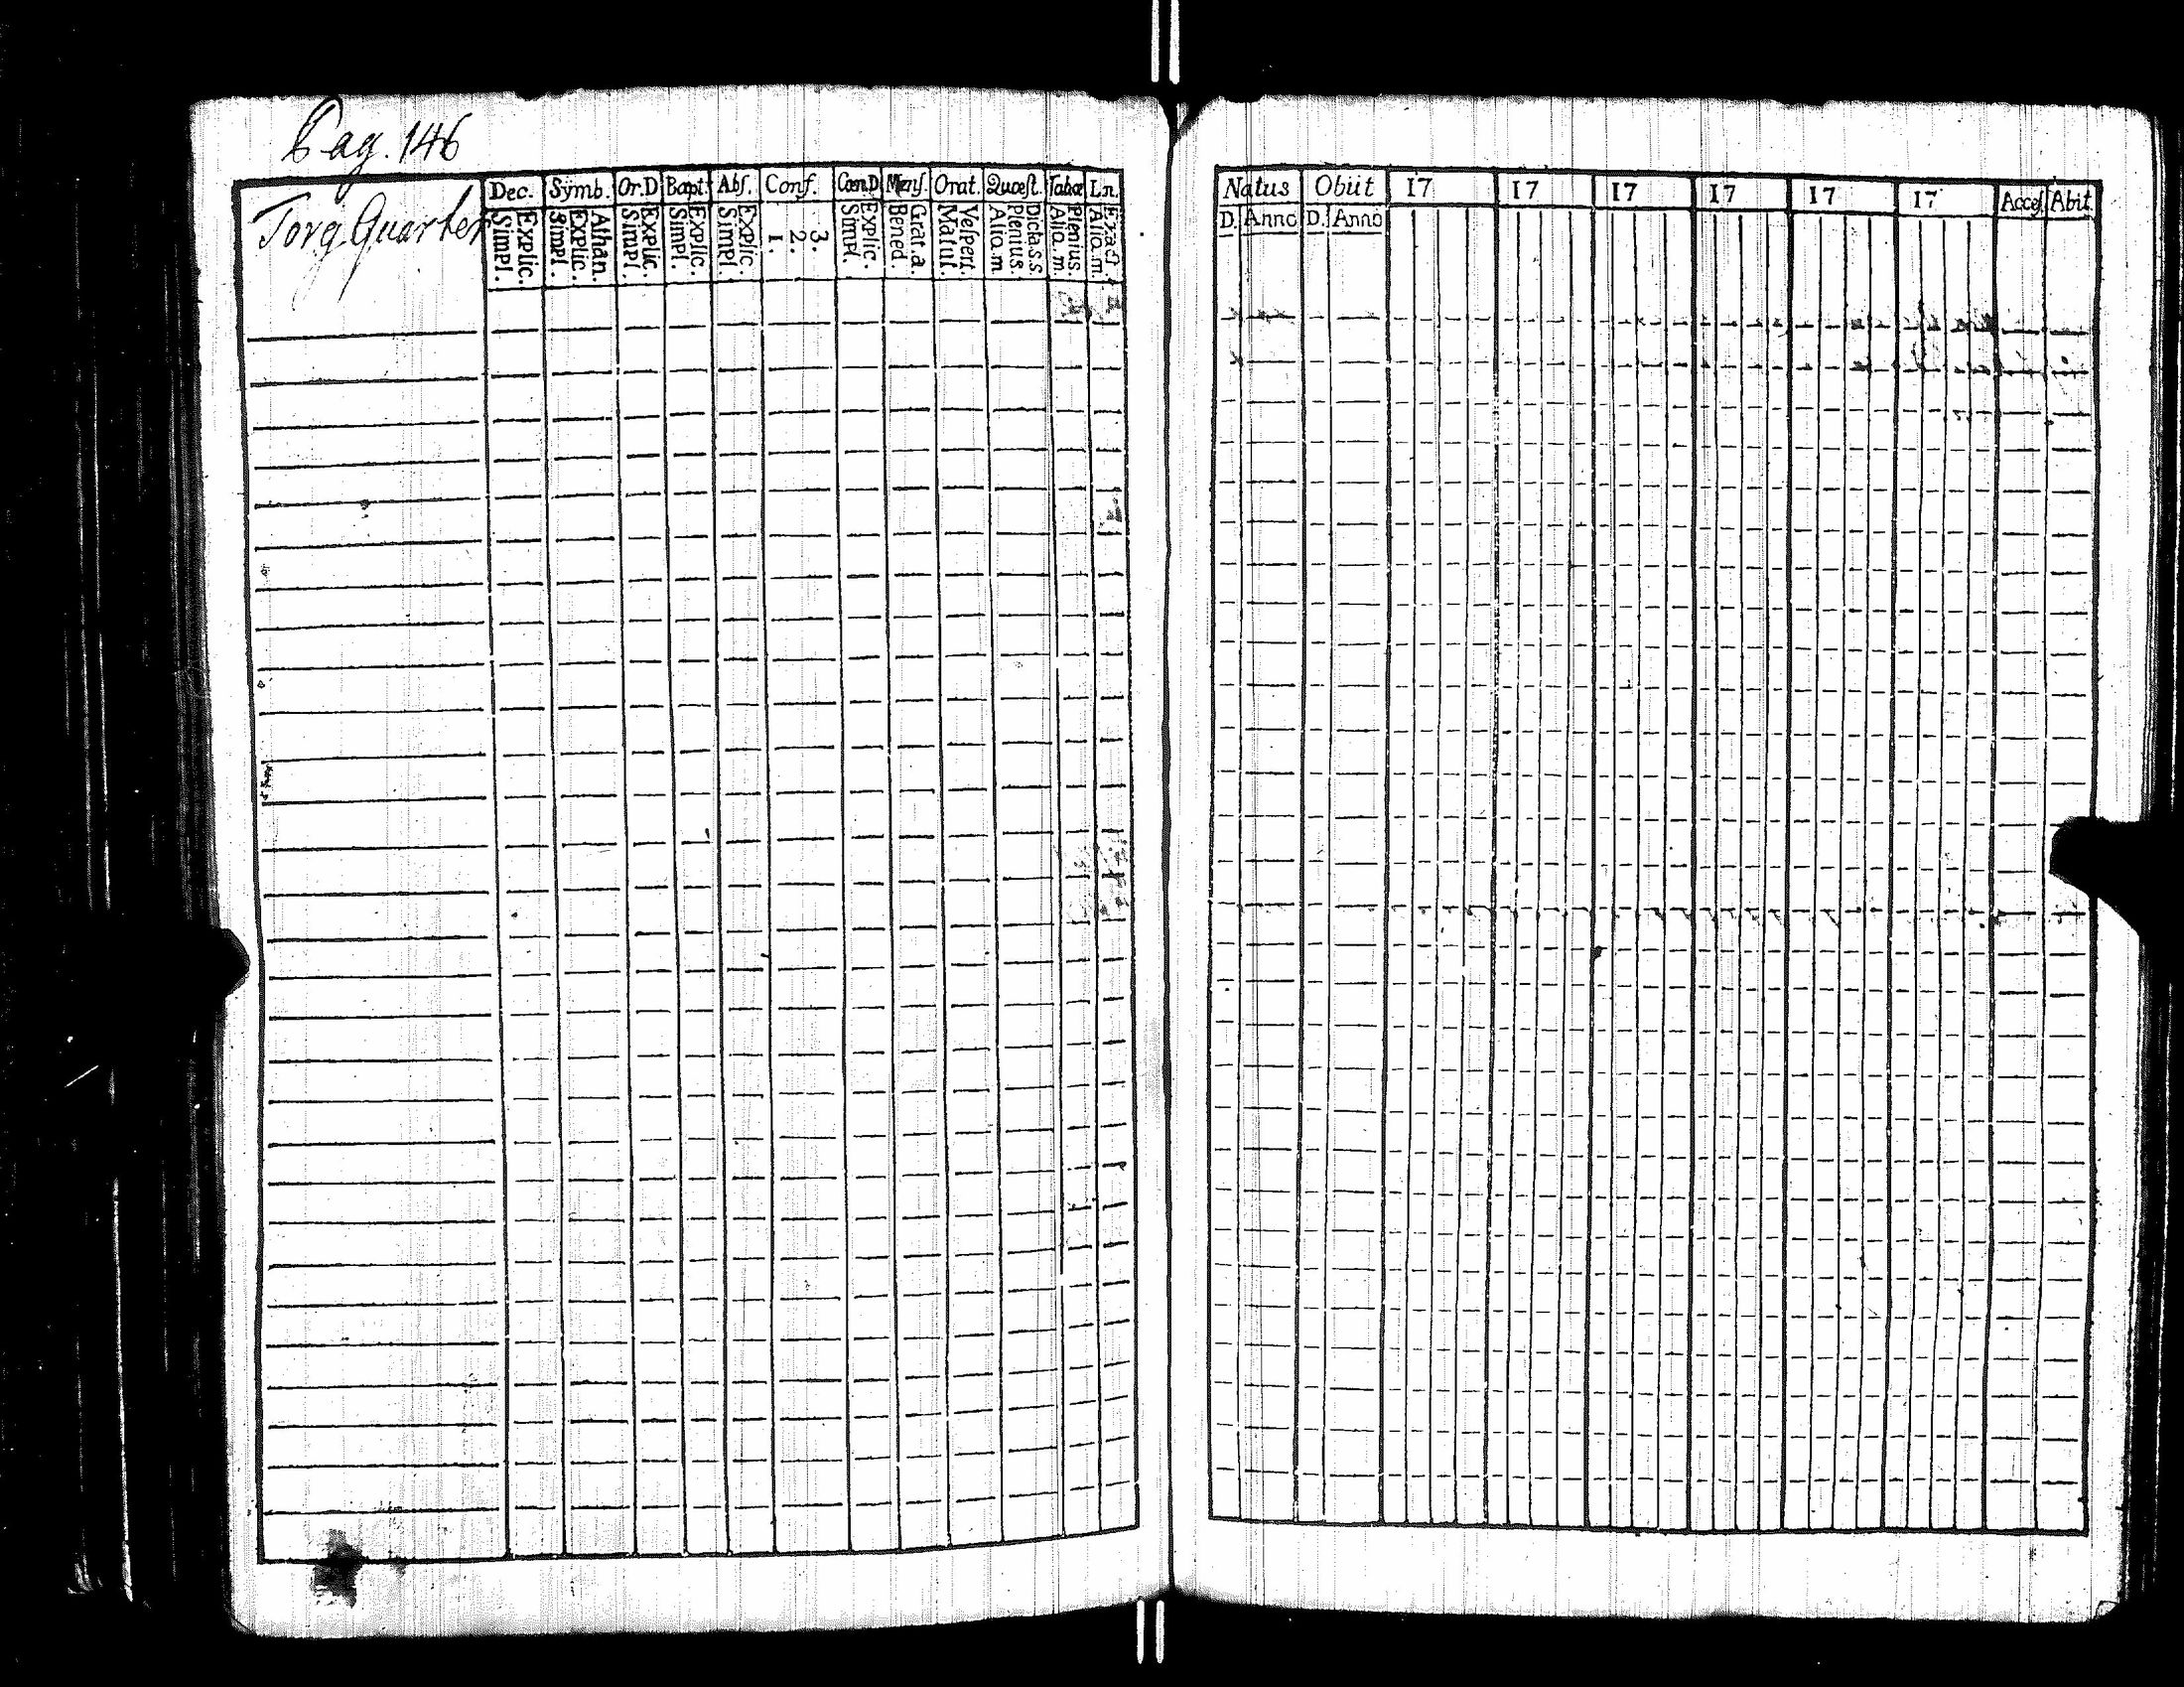 Pag. 146
Torg Quarter
Dec. Symb. Or.D Bapt. Abſ. Conf. Cœn.D Menſ. Orat. Quœſt. Tabœ Ln.
Simpl. Explic. Simpl. Explic. Athan. Simpl. Explic. Simpl. Explic. Simpl. Explic. 1. 2. 3. Simpl. Explic. Bened. Grat. a. Matut. Veſpert. Alio. m. Plenius. Dicta.s.s. Alio. m. Plenius. Alio. m. Exact.
Natus Obiit 17 17 17 17 17 17 Acceſ. Abit.
D. Anno D. Anno